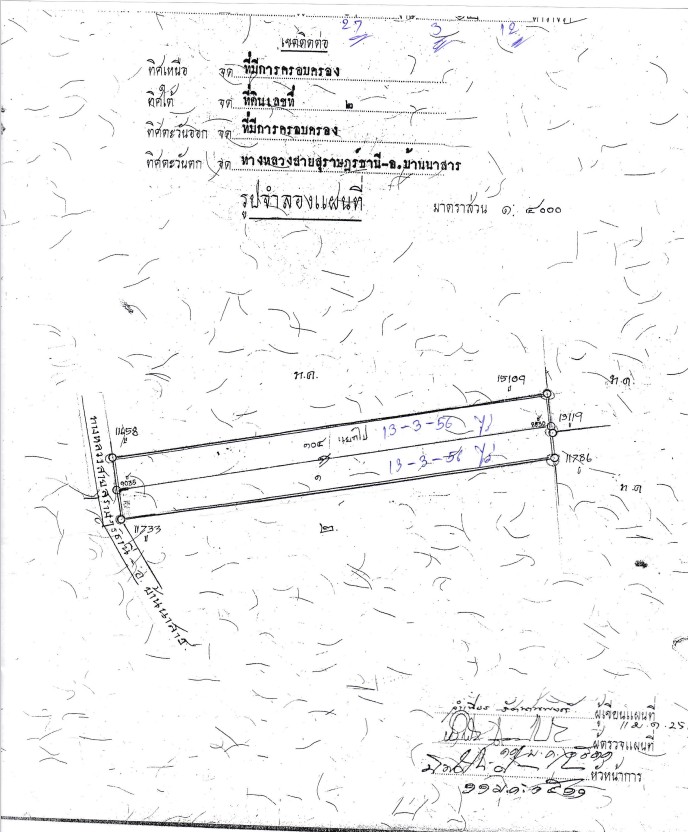 27 3 12
เขตติดต่อ
ทิศเหนือ จด ที่มีการครอบครอง
ทิศใต้ จด ที่ดินเลขที่ ๒
ทิศตะวันออก จด ที่มีการครอบครอง
ทิศตะวันตก จด ทางหลวงสายสุราษฎร์ธานี-อ.บ้านนาสาร
รูปจำลองแผนที่
มาตราส่วน ๑: ๔๐๐๐
ท.ค.
15109
ท.ค.
11458
๓๐๔/ แยกไป 13-3-56 ไร่
15119
๑
13-3-56 ไร่
11786
ท.ค
11733
๒
ทางหลวงสายสุราษฎร์ธานี - อ. บ้านนาสาร
ผู้เขียนแผนที่
ผู้ตรวจแผนที่
หัวหน้าการ